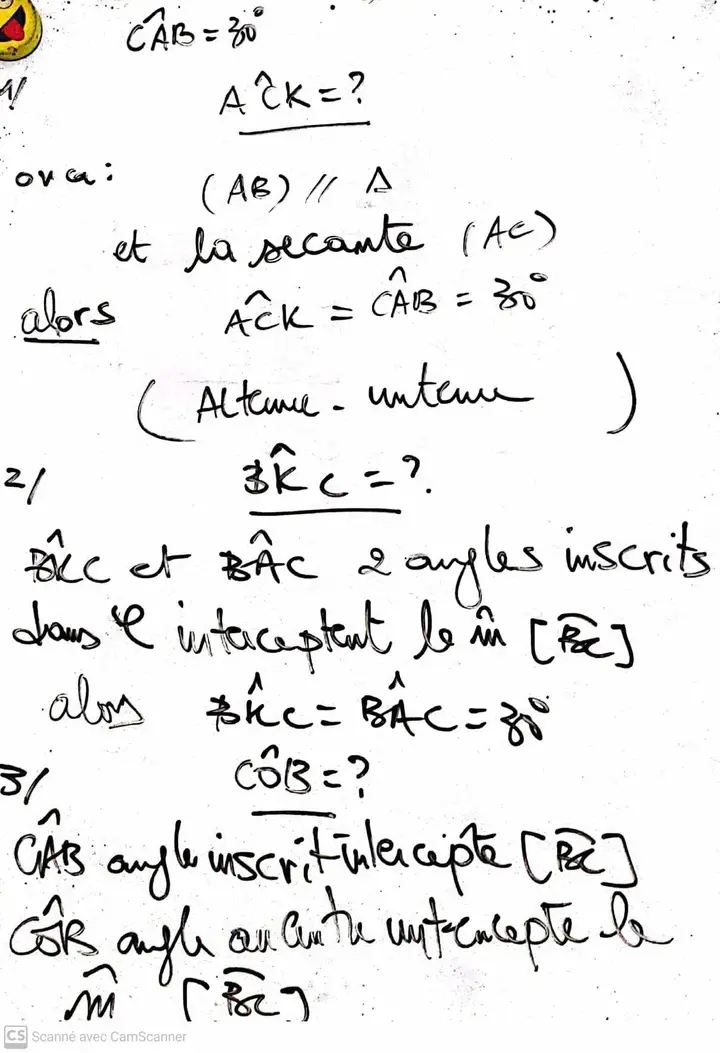 CÂB = 30°
1/
AĈK = ?
on a :
(AB) // Δ
et la secante (AC)
alors AĈK = CÂB = 30°
(Alterne - interne)
2/ BK̂C = ?.
BK̂C et BÂC 2 angles inscrits
dans 𝒞 interceptent le m̂ [B͡C]
alors BK̂C = BÂC = 30°
3/ CÔB = ?
CÂB angle inscrit intercepte [B͡C]
CÔB angle au centre intercepte le
m̂ [B͡C]
CS Scanné avec CamScanner